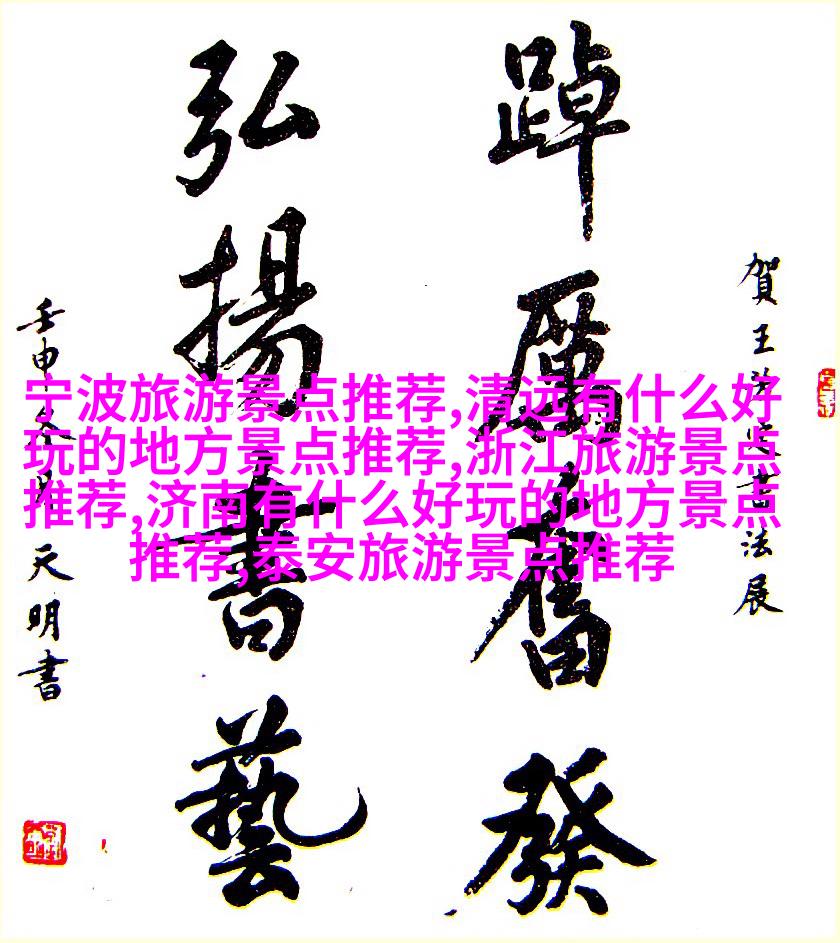 賀王書法展
踔厲奮發
弘揚書藝
壬申冬天明書
宁波旅游景点推荐,清远有什么好
玩的地方景点推荐,浙江旅游景点
推荐,济南有什么好玩的地方景点
推荐,泰安旅游景点推荐